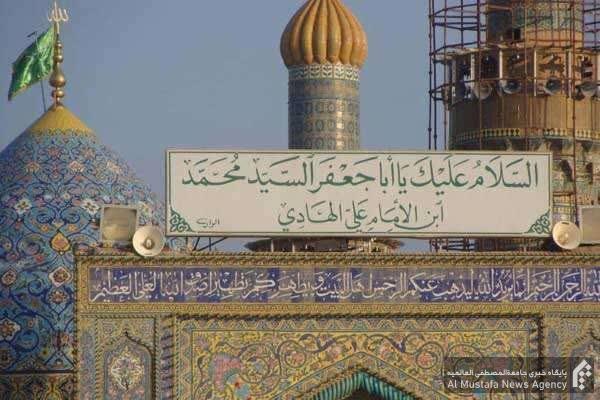 السَّلَامُ عَلَيْكَ يَا أَبَا جَعْفَرٍ السَّيِّد مُحَمَّد
ابن الإمَام عَلي الهَادِي
الرحمن الرحيم إنما يريد الله ليذهب عنكم الرجس أهل البيت ويطهركم تطهيرا صدق الله العلي العظيم
پایگاه خبری جامعة المصطفی العالمیه
Al Mustafa News Agency